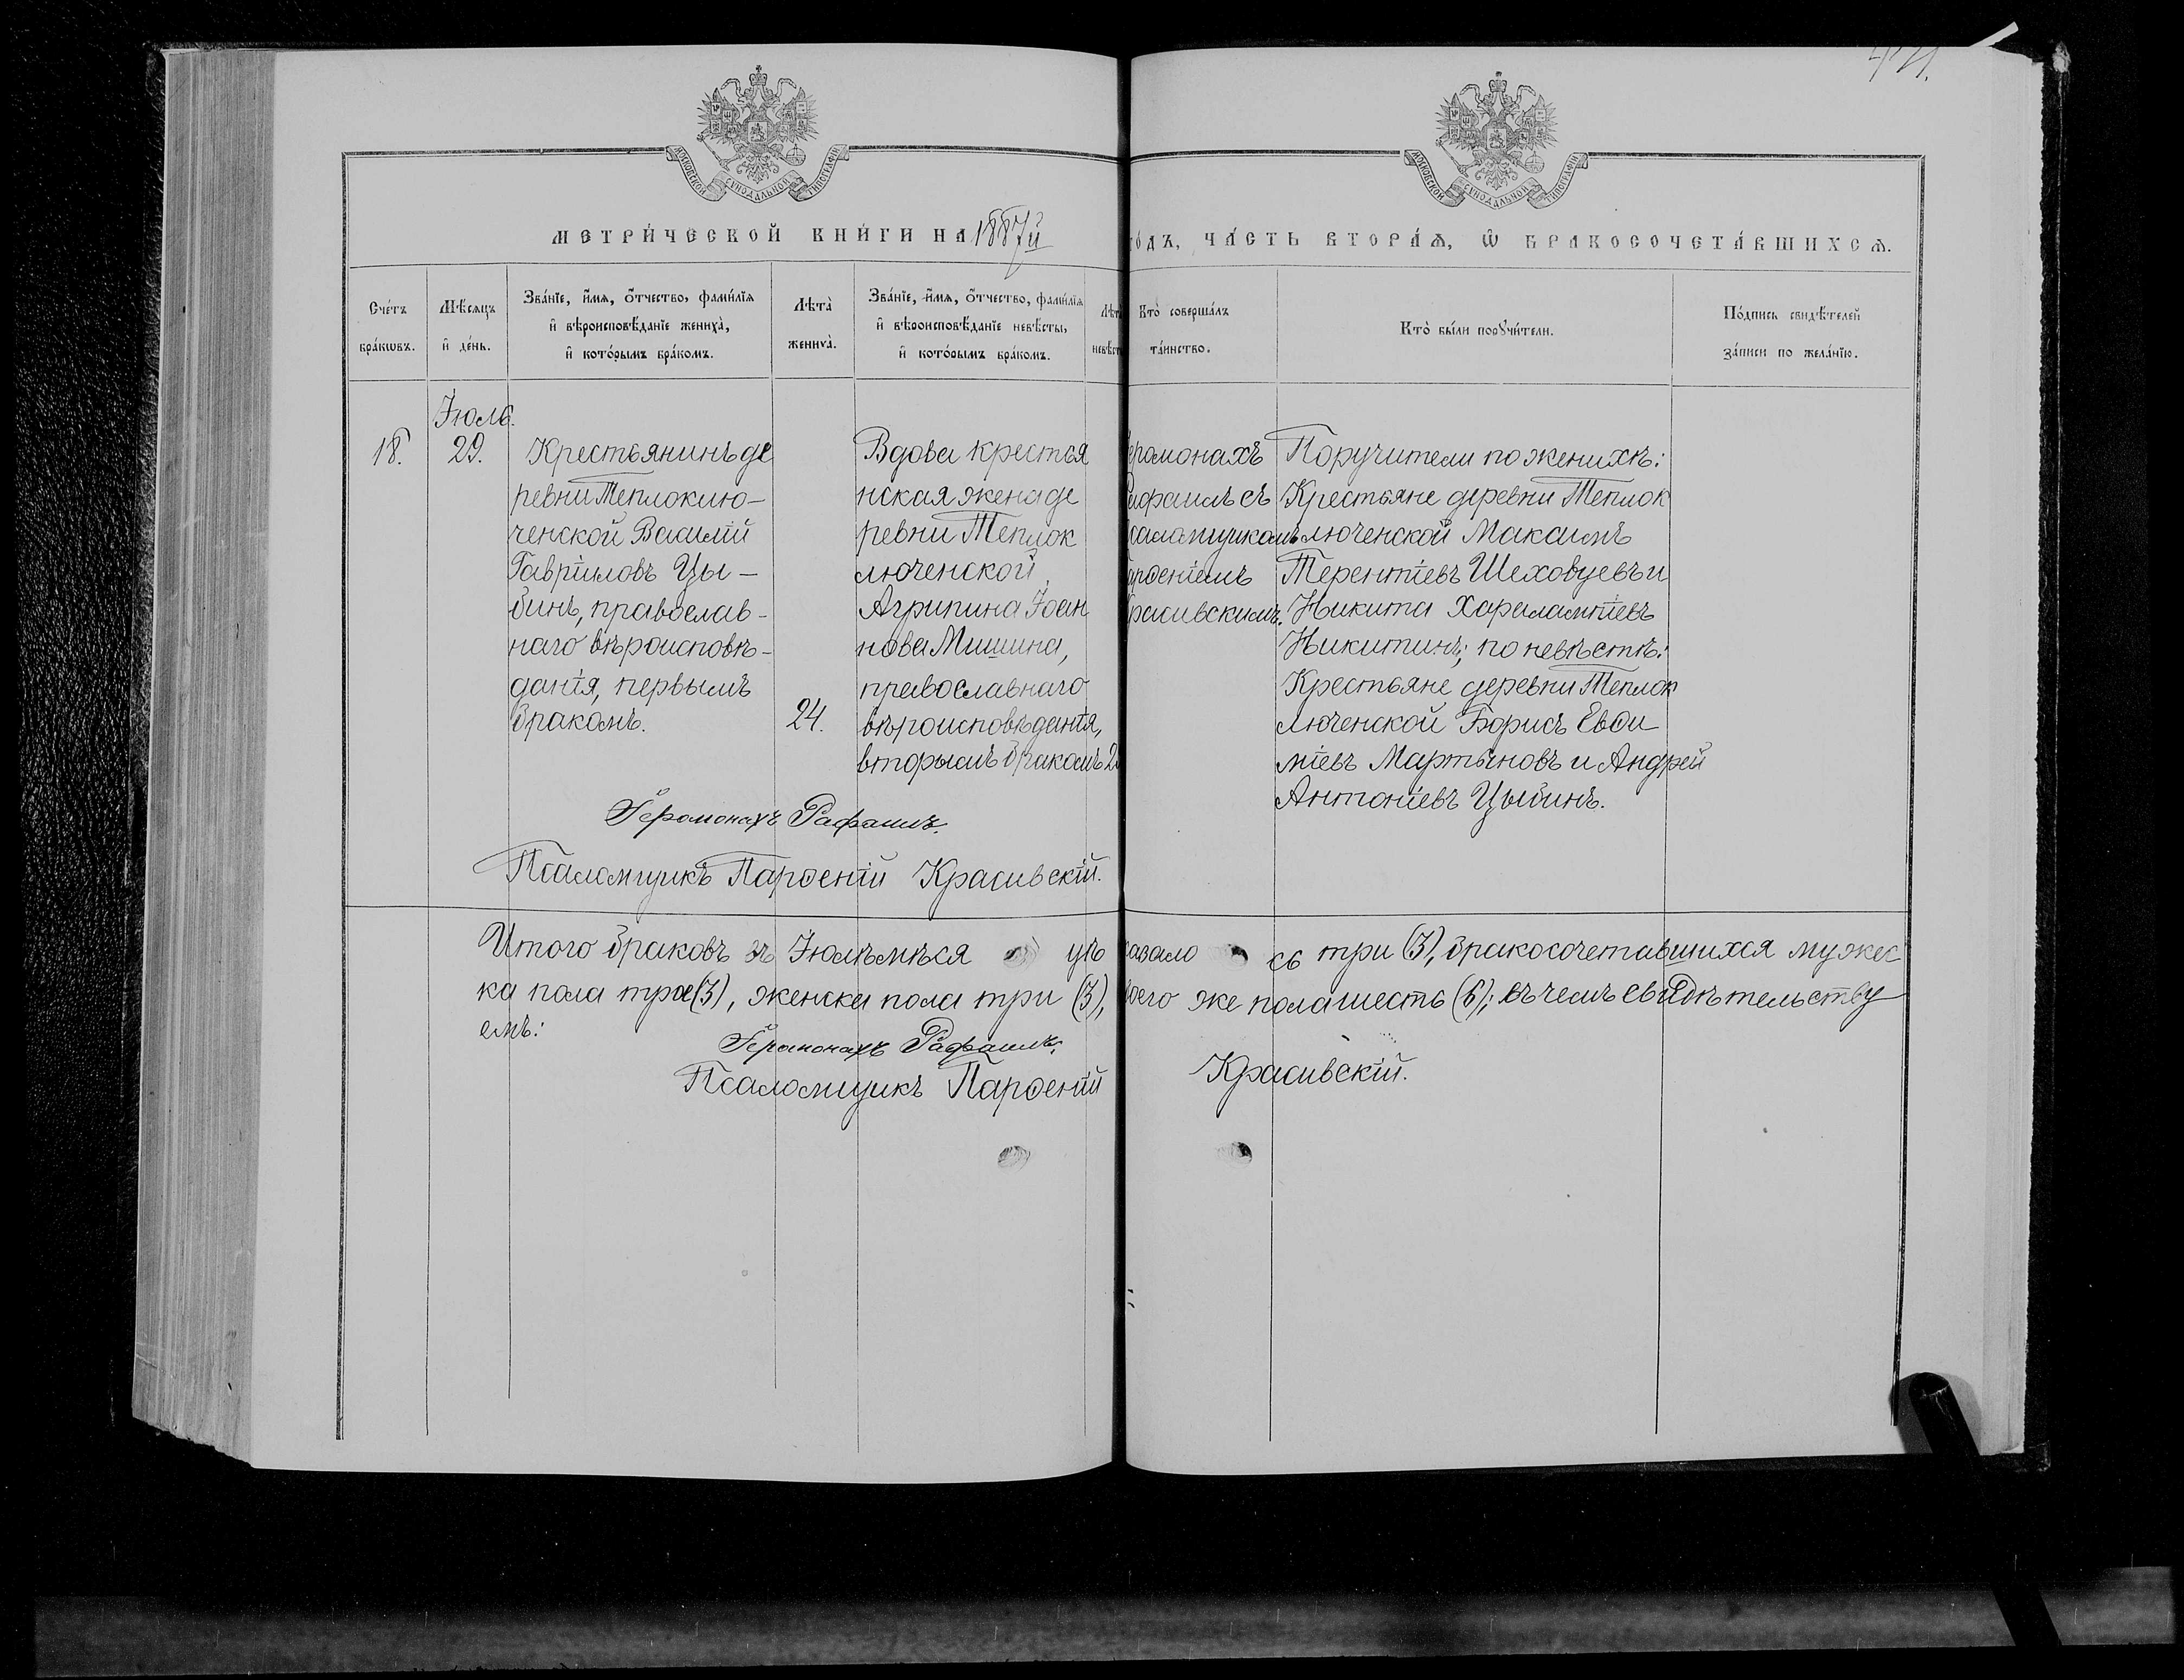 421.
МОСКОВСКОЙ СѴНОДАЛЬНОЙ ТИПОГРАФІИ
МОСКОВСКОЙ СѴНОДАЛЬНОЙ ТИПОГРАФІИ
МЕТРИ́ЧЕСКОЙ КНИ́ГИ НА 1887й
ГО́ДЪ, ЧА́СТЬ ВТОРА́Ѧ, Ѽ БРАКОСОЧЕТА́ВШИХСѦ.
Сче́тъ
бра́кѡвъ.
Мѣ́сяцъ
и҆ де́нь.
Зва́нїе, и҆́мѧ, ѻ҆́тчество, фами́лїѧ
и҆ вѣроисповѣ́данїе жениха̀,
и҆ кото́рымъ бра́комъ.
Лѣта̀
жениха̀.
Зва́нїе, и҆́мѧ, ѻ҆́тчество, фами́лїѧ
и҆ вѣроисповѣ́данїе невѣ́сты,
и҆ кото́рымъ бра́комъ.
Лѣта̀
невѣ́сты
Кто̀ соверша́лъ
та́инство.
Кто̀ бы́ли порꙋчи́тели.
По́дпись свидѣ́телей
за́писи по жела́нїю.
18.
Іюль.
29.
Крестьянинъ де
ревни Теплоклю-
ченской Василій
Гавріиловъ Цы-
бинъ, православ-
наго вѣроисповѣ-
данія, первымъ
бракомъ.
24.
Вдова крестья
нская жена де
ревни Теплок
люченской
Агрипина Іоан
нова Мишина,
православнаго
вѣроисповѣданія,
вторымъ бракомъ 2
еромонахъ
Рафаилъ съ
псаломщикомъ
Парѳеніемъ
Красивскимъ.
Поручители по женихѣ:
Крестьяне деревни Теплок
люченской Максимъ
Терентіевъ Шеховцевъ и
Никита Харалампіевъ
Никитинъ; по невѣстѣ:
Крестьяне деревни Теплок
люченской Борисъ Евѳи
міевъ Мартыновъ и Андрей
Антоніевъ Цыбинъ.
Іеромонахъ Рафаилъ.
Псаломщикъ Парѳеній Красивскій.
Итого браковъ въ Іюлѣ мѣся цѣ казало сь три (3), бракосочетавшихся мужес
ка пола три (3), женска пола три (3), обоего же пола шесть (6); въ чемъ свидѣтельству
емъ:
Іеромонахъ Рафаилъ.
Псаломщикъ Парѳеній Красивскій.